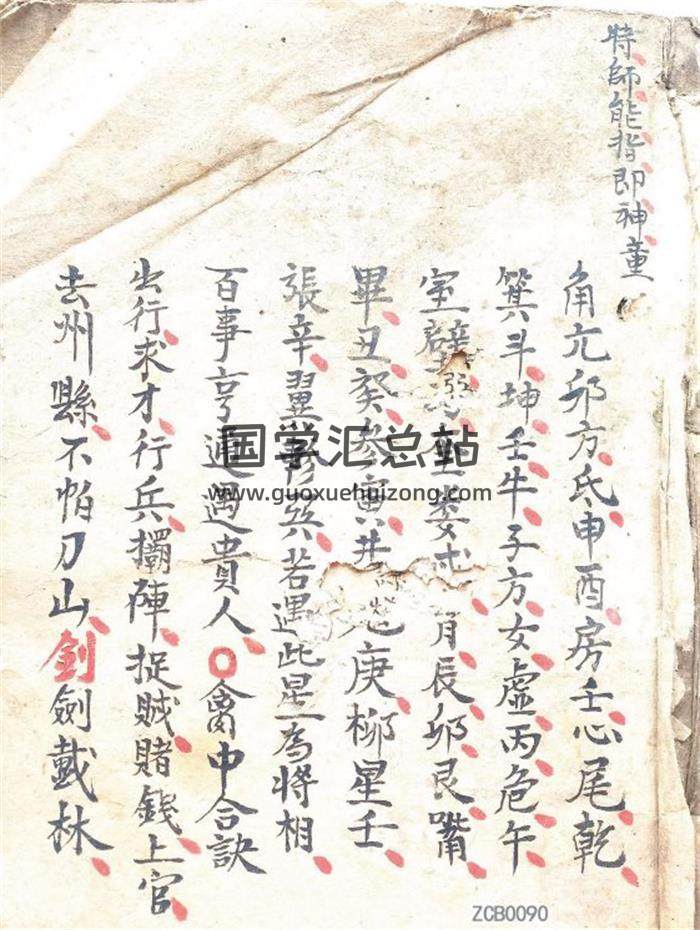 時師能指即神童
角亢卯方氐申酉房壬心尾乾
箕斗坤壬牛子方女虛丙危午
室壁 奎婁戌 月辰卯艮嘴
畢丑癸參寅井 庚柳星壬
張辛翼軫巽若遇此星為將相
百事亨通遇貴人〇禽中合訣
出行求才行兵擺陣捉賊賭錢上官
去州縣不怕刀山劍劍載林
国学汇总站
www.guoxuehuizong.com
ZCB0090